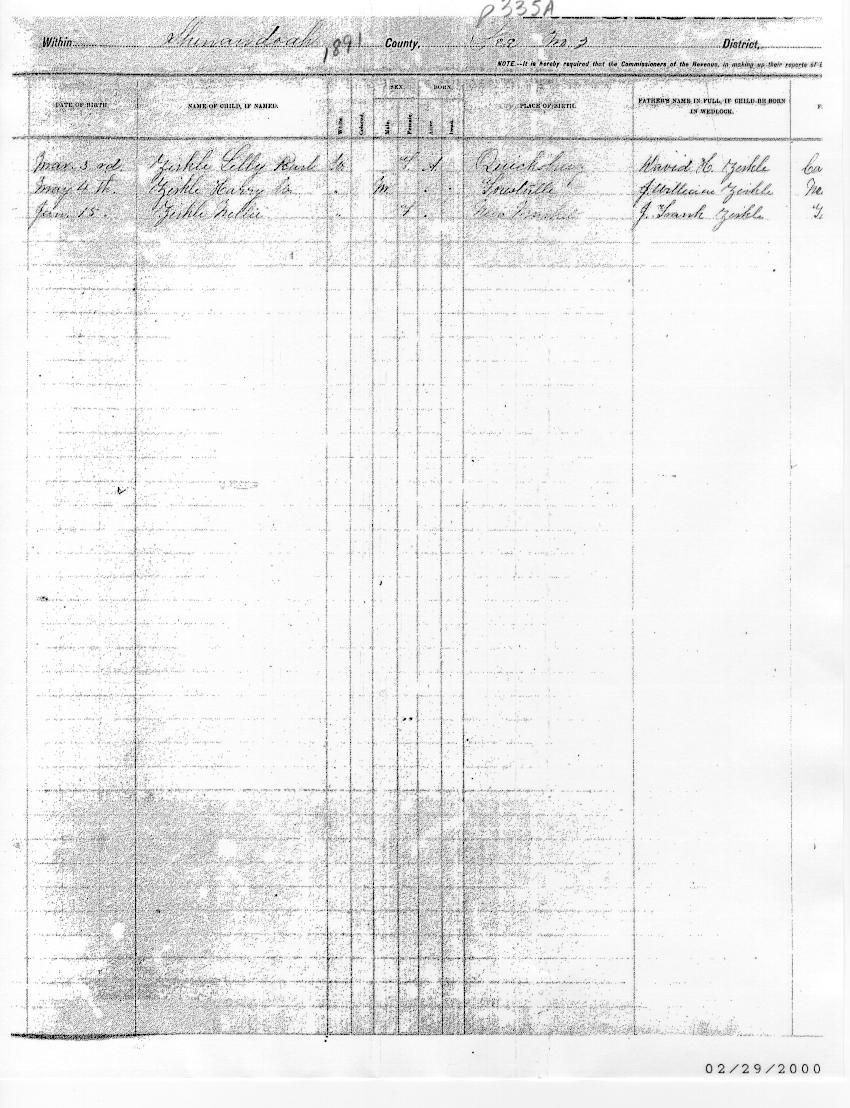 p335A
Within Shenandoah 1891 County, No 2 District,
NOTE.--It is hereby required that the Commissioners of the Revenue, in making up their reports of
DATE OF BIRTH NAME OF CHILD, IF NAMED. White. Colored. SEX Male. Female. BORN. Alive. Dead. PLACE OF BIRTH. FATHER'S NAME IN FULL, IF CHILD BE BORN IN WEDLOCK. F
Mar. 3rd Zirkle Lilly W F A Quicksburg David H. Zirkle Ca
May 4th. Zirkle Harry M Forestville J William Zirkle
Jan. 15. Zirkle Nellie F New Market J. Frank Zirkle
02/29/2000